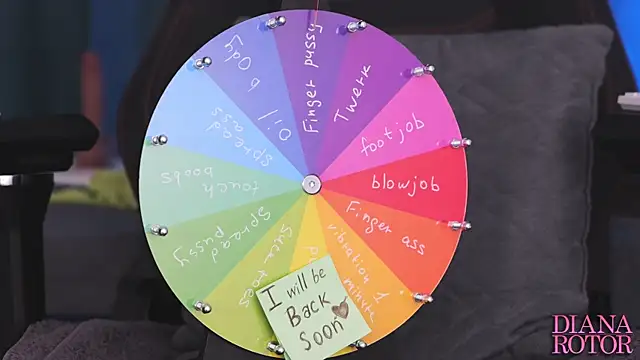 Finger pussy
Twerk
footjob
blowjob
Finger ass
vibration 1
minute
suck toes
spread
pussy
touch
boobs
spread
ass
oil
body
I will be
Back
Soon
DIANA
ROTOR